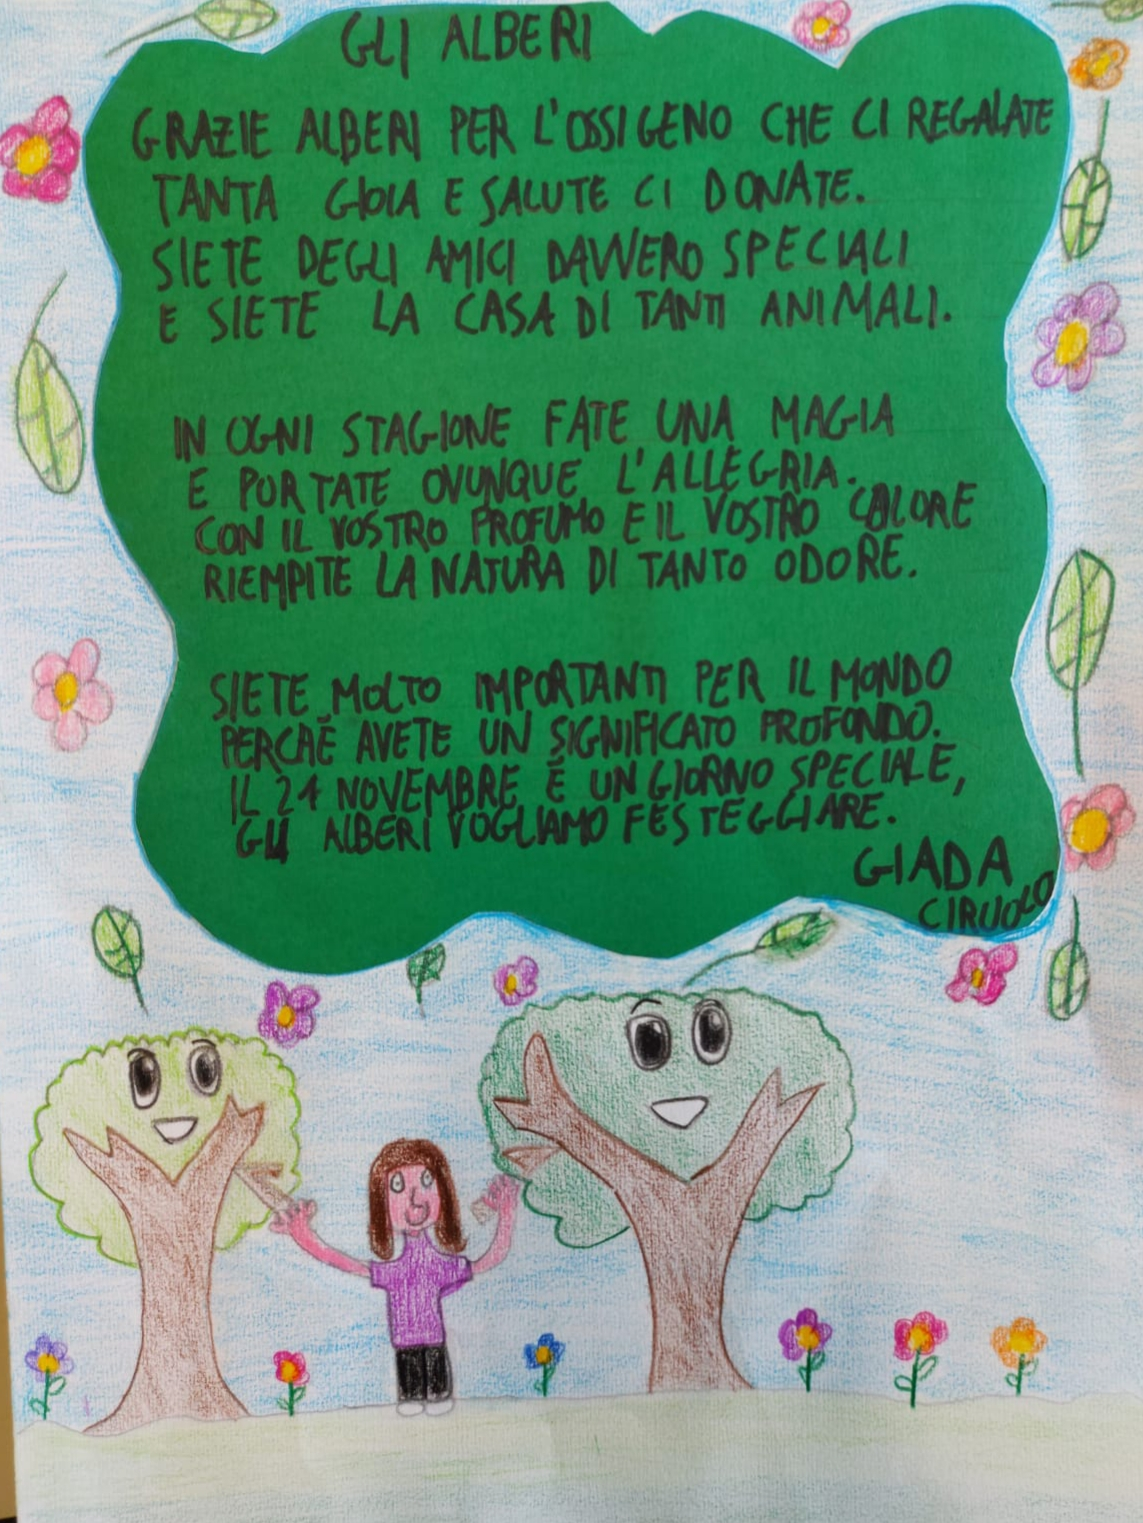 GLI ALBERI
GRAZIE ALBERI PER L'OSSIGENO CHE CI REGALATE
TANTA GIOIA E SALUTE CI DONATE.
SIETE DEGLI AMICI DAVVERO SPECIALI
E SIETE LA CASA DI TANTI ANIMALI.
IN OGNI STAGIONE FATE UNA MAGIA
E PORTATE OVUNQUE L'ALLEGRIA.
CON IL VOSTRO PROFUMO E IL VOSTRO CALORE
RIEMPITE LA NATURA DI TANTO ODORE.
SIETE MOLTO IMPORTANTI PER IL MONDO
PERCHÉ AVETE UN SIGNIFICATO PROFONDO.
IL 21 NOVEMBRE É UN GIORNO SPECIALE,
GLI ALBERI VOGLIAMO FESTEGGIARE.
GIADA
CIRUOLO